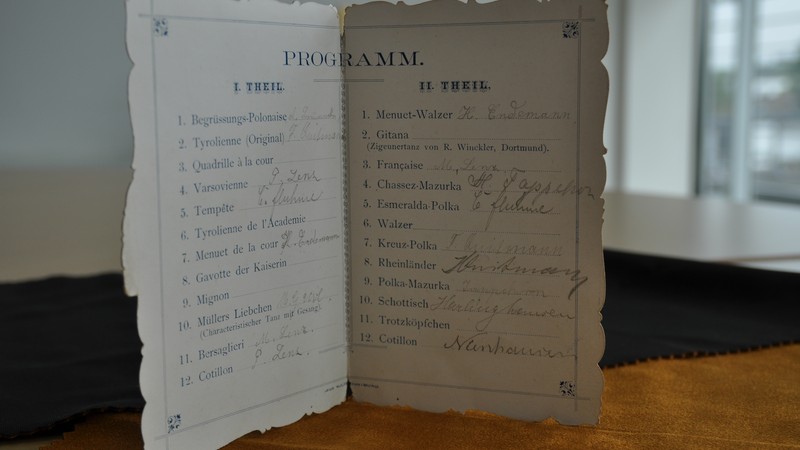 PROGRAMM.
I. THEIL.
1. Begrüssungs-Polonaise
2. Tyrolienne (Original)
3. Quadrille à la cour
4. Varsovienne P. Lenz
5. Tempête E. fluhme
6. Tyrolienne de l'Academie
7. Menuet de la cour H. Endemann
8. Gavotte der Kaiserin
9. Mignon
10. Müllers Liebchen
(Characteristischer Tanz mit Gesang)
11. Bersaglieri M. Lenz.
12. Cotillon P. Lenz.
II. THEIL.
1. Menuet-Walzer H. Endemann
2. Gitana
(Zigeunertanz von R. Winckler, Dortmund).
3. Française M.
4. Chassez-Mazurka H.
5. Esmeralda-Polka E fluhme
6. Walzer
7. Kreuz-Polka
8. Rheinländer
9. Polka-Mazurka
10. Schottisch
11. Trotzköpfchen
12. Cotillon